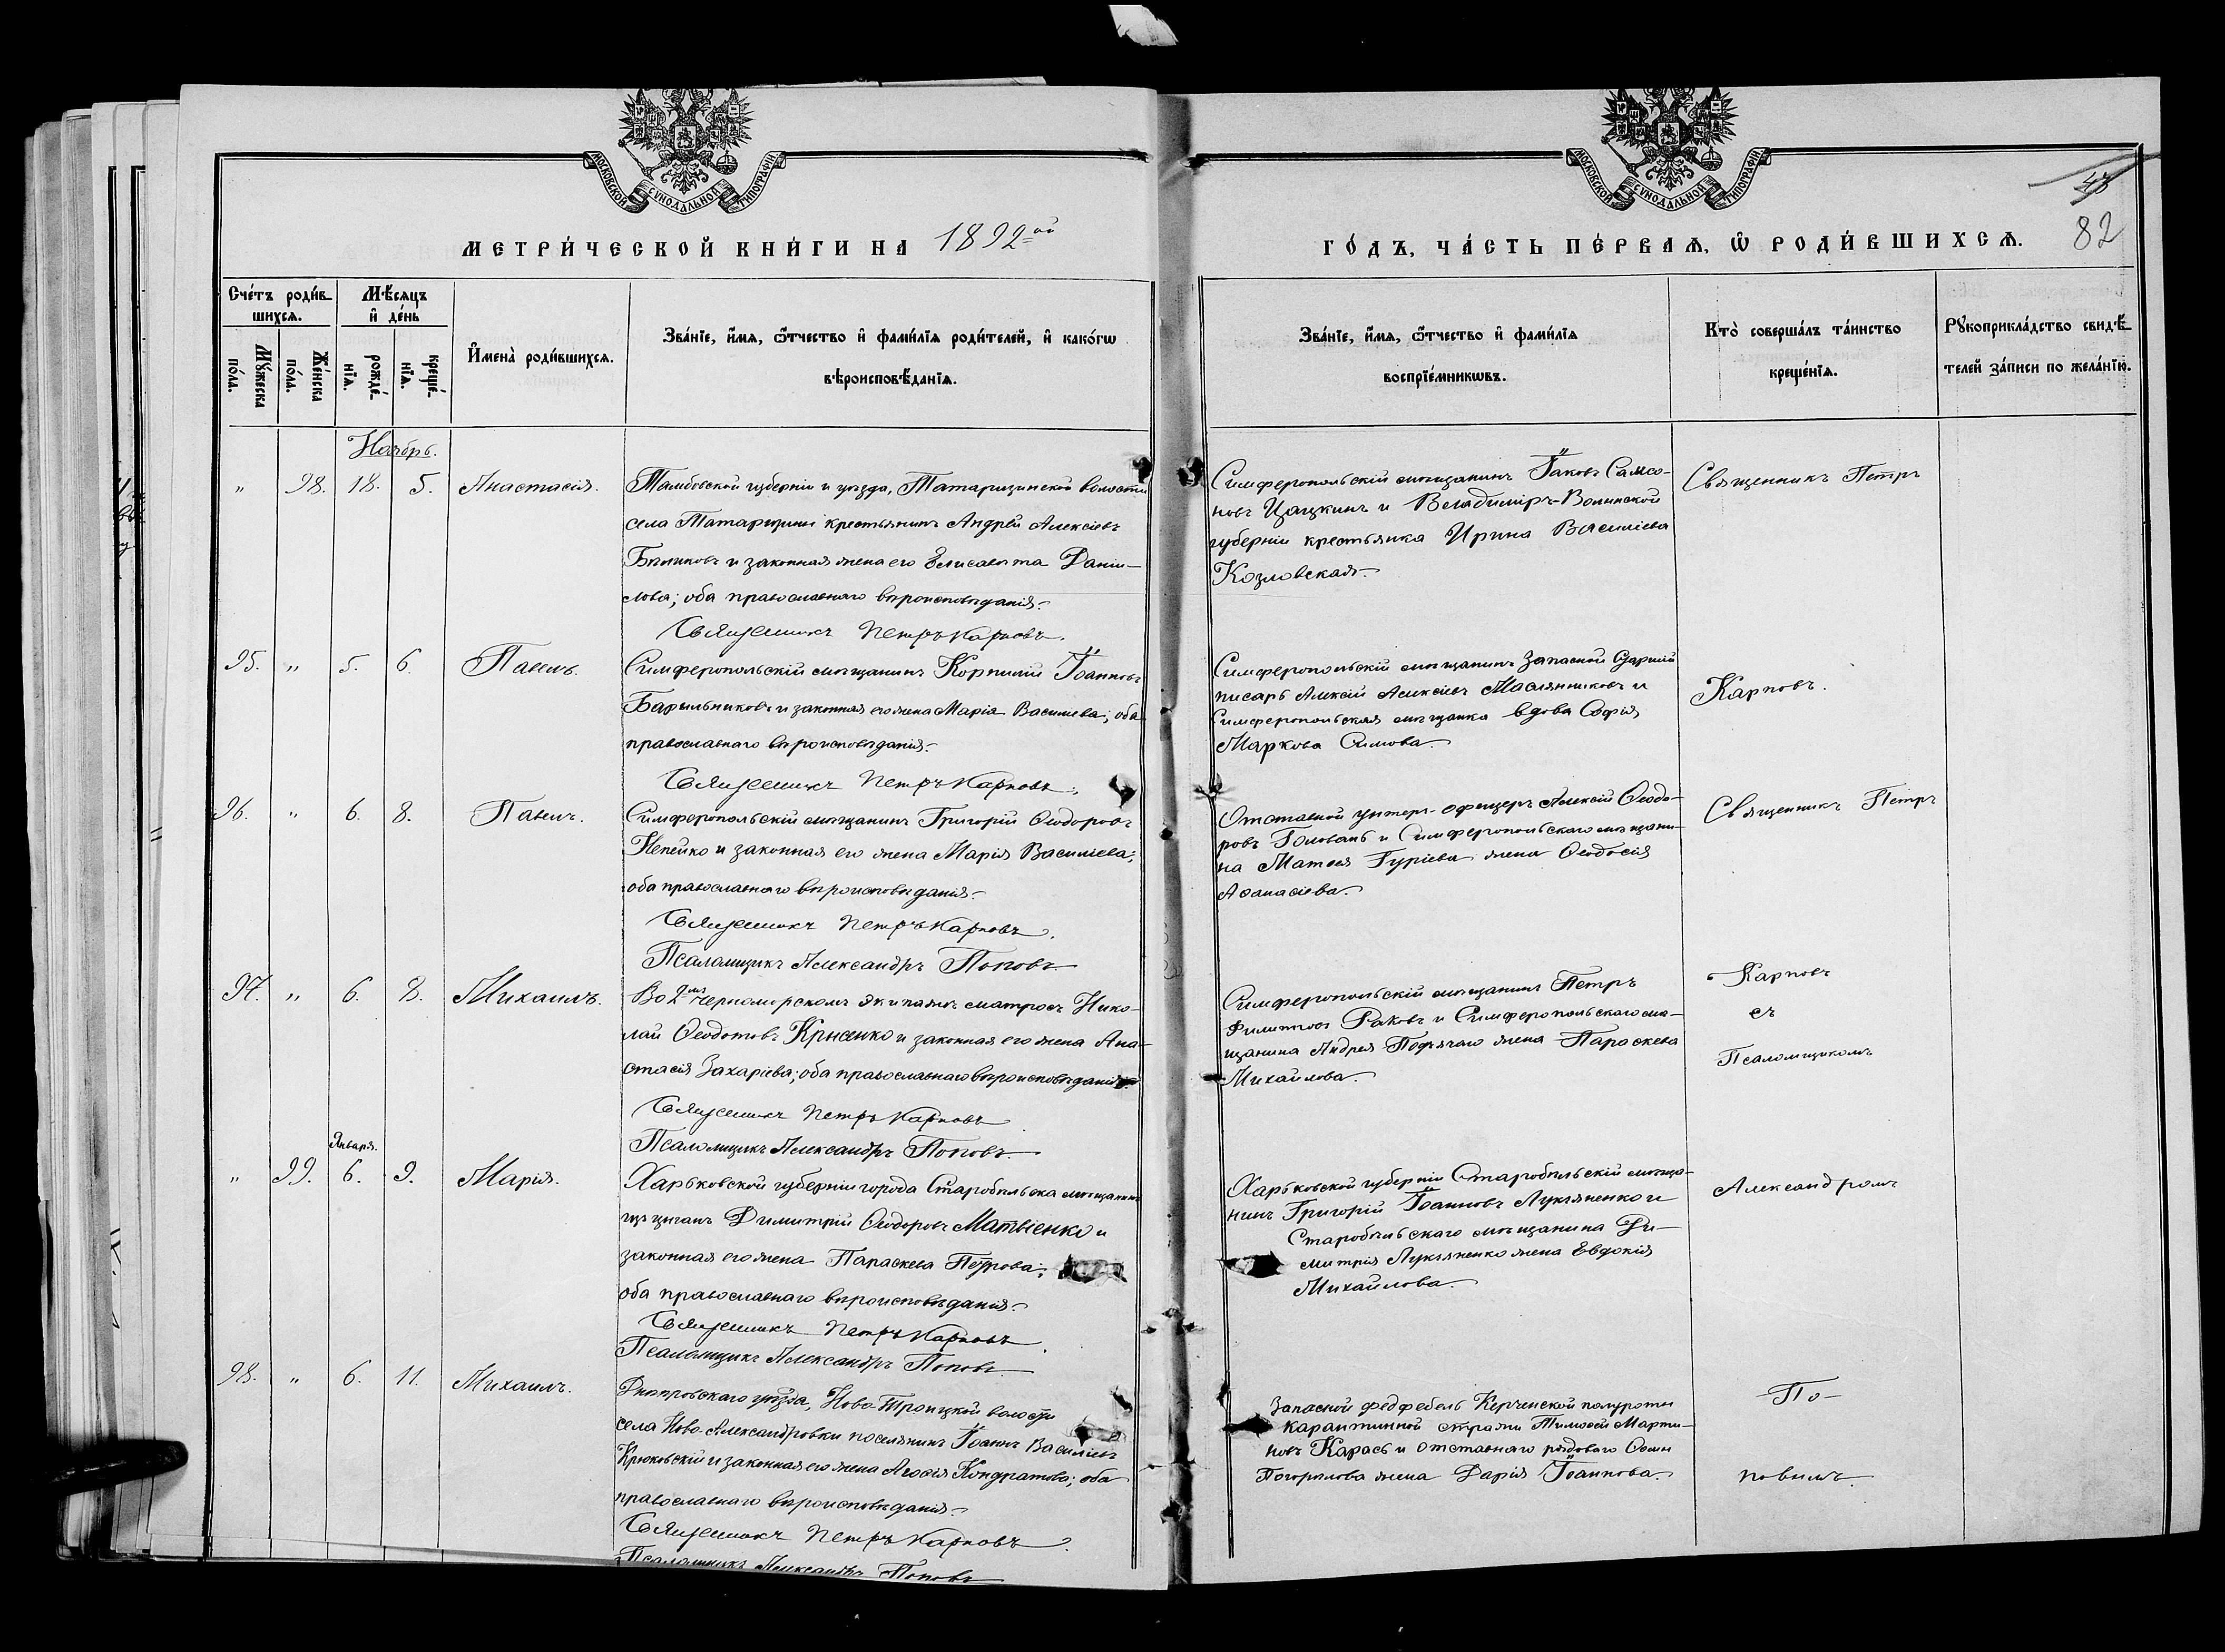 МОСКОВСКОЙ СУНОДАЛЬНОЙ ТИПОГРАФІИ
МОСКОВСКОЙ СУНОДАЛЬНОЙ ТИПОГРАФІИ
47
82
МЕТРИ́ЧЕСКОЙ КНИ́ГИ НА 1892-ой
ГО́ДЪ, ЧА́СТЬ ПЕ́РВАѦ, Ѿ РОДИ́ВШИХСѦ.
Сче́тъ роди́в-
шихсѧ.
Мѣ́сѧцъ
и҆ де́нь
Мꙋ́жеска
по́ла.
Же́нска
по́ла.
рожде́-
нїѧ.
креще́-
нїѧ.
И҆мена̀ роди́вшихсѧ.
Зва́нїе, и҆́мѧ, ѻ҆́тчество и҆ фами́лїѧ роди́телей, и҆ како́гѡ
вѣроисповѣ́данїѧ.
Зва́нїе, и҆́мѧ, ѻ҆́тчество и҆ фами́лїѧ
воспрїе́мникѡвъ.
Кто̀ соверша́лъ та́инство
креще́нїѧ.
Рꙋкоприкла́дство свидѣ́-
телей за́писи по жела́нїю.
Ноябрь.
" 98. 18. 5. Анастасія.
Тамбовской губерніи и уѣзда, Татарщинской волости
села Татарщины крестьянинъ Андрей Алексіевъ
Бѣликовъ и законная жена его Елисавета Даніи-
лова; оба православнаго вѣроисповѣданія.
Священникъ Петръ Карповъ.
Симферопольскій мѣщанинъ Іаковъ Самсо-
новъ Цацкинъ и Владиміръ-Волынской
губерніи крестьянка Ирина Василіева
Козловская.
Священникъ Петръ
95. " 5. 6. Павелъ.
Симферопольскій мѣщанинъ Корнилій Іоанновъ
Барыльниковъ и законная его жена Марія Василіева; оба
православнаго вѣроисповѣданія.
Священникъ Петръ Карповъ.
Симферопольскій мѣщанинъ Запасной Старшій
писарь Алексій Алексіевъ Маслянниковъ и
Симферопольская мѣщанка вдова Софія
Маркова Симова.
Карповъ.
96. " 6. 8. Павелъ.
Симферопольскій мѣщанинъ Григорій Ѳеодоровъ
Непейко и законная его жена Марія Василіева;
оба православнаго вѣроисповѣданія.
Священникъ Петръ Карповъ.
Псаломщикъ Александръ Поповъ
Отставной унтеръ-офицеръ Алексій Ѳеодо-
ровъ Головань и Симферопольскаго мѣщани-
на Матѳея Гуріева жена Ѳеодосія
Аѳанасіева.
Священникъ Петръ
97. " 6. 8. Михаилъ.
Во 2мъ Черноморскомъ экипажѣ матросъ Нико-
лай Ѳеодотовъ Крысенко и законная его жена Ана-
стасія Захаріева; оба православнаго вѣроисповѣданія.
Священникъ Петръ Карповъ
Псаломщикъ Александръ Поповъ
Симферопольскій мѣщанинъ Петръ
Филиповъ Раковъ и Симферопольскаго мѣ-
щанина Андрея Парскева
Михайлова.
Карповъ
съ
Псаломщикомъ
Января.
" 99. 6. 9. Марія.
Харьковской губерніи города Старобѣльска мѣщанинъ
изъ цыганъ Димитрій Ѳеодоровъ Матвіенко и
законная его жена Параскева Петрова;
оба православнаго вѣроисповѣданія.
Священникъ Петръ Карповъ.
Псаломщикъ Александръ Поповъ
Харьковской губерніи Старобѣльскій мѣща-
нинъ Григорій Іоанновъ Лукьяненко и
Старобѣльскаго мѣщанина Ди-
митрія Лукьяненко жена Евдокія
Михайлова.
Александромъ
98. " 6. 11. Михаилъ.
Днѣпровскаго уѣзда, Ново-Троицкой волости
села Ново-Александровки поселянинъ Іоаннъ Василіевъ
Крюковскій и законная его жена Агаѳія Кондратова; оба
православнаго вѣроисповѣданія.
Священникъ Петръ Карповъ
Псаломщикъ Александръ Поповъ
Запасной фельдфебель Керченской полуроты
карантинной стражи Тимоѳей Марти-
новъ Карась и отставного рядового Осипа
Погорѣлова жена Дарія Іоаннова.
По-
повымъ.